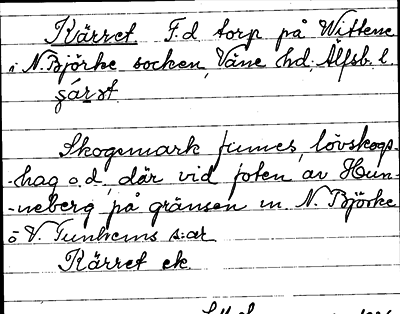 Kärret F.d torp på Wittene
i N. Björke socken, Väne hd. Älfsb. l.
Skogsmark finnes, lövskogs-
-hag o.d, där vid foten av Hun-
-neberg på gränsen m. N. Björke
o V. Tunhems s:ar
Kärret ek